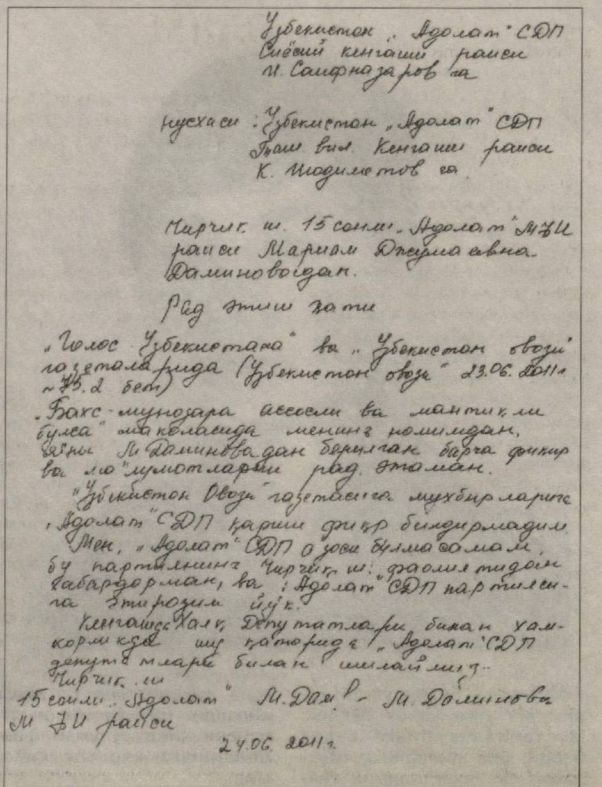 Ўзбекистон „Адолат" СДП
Сиёсий кенгаши раиси
И. Саифназаров га
нусхаси : Ўзбекистон „Адолат" СДП
Тош вил. Кенгаши раиси
К. Шодиметов га.
Чирчиқ ш. 15 сонли „Адолат" МФЙ
раиси Мариам Джумаевна
Даминовадан.
Рад этиш хати
„Голос Узбекистана" ва „Ўзбекистон овози"
газеталарида (Ўзбекистон овози" 23.06.2011 г
№ 75. 2 бет)
„Бахс-мунозара асосли ва мантиқли
бўлса" мақоласида менинг номимдан,
яъни М. Даминовадан берилган барча фикир
ва маълумотларни рад этаман.
„Ўзбекистон Овози" газетасига мухбирларига
„Адолат" СДП қарши фикр билдирмадим.
Мен, „Адолат" СДП аъзоси бўлмасамам,
бу партиянинг Чирчиқ ш. фаолиятидан
хабардорман, ва „Адолат" СДП партияси-
га этирозим йўқ.
Кенгаши Халқ Депутатлари билан хам-
корликда шу қаторида „Адолат" СДП
депутатлари билан ишлаймиз.
Чирчиқ ш
15 сонли „Адолат" М. Дам - М. Даминова
МФЙ раиси
24.06. 2011 г.